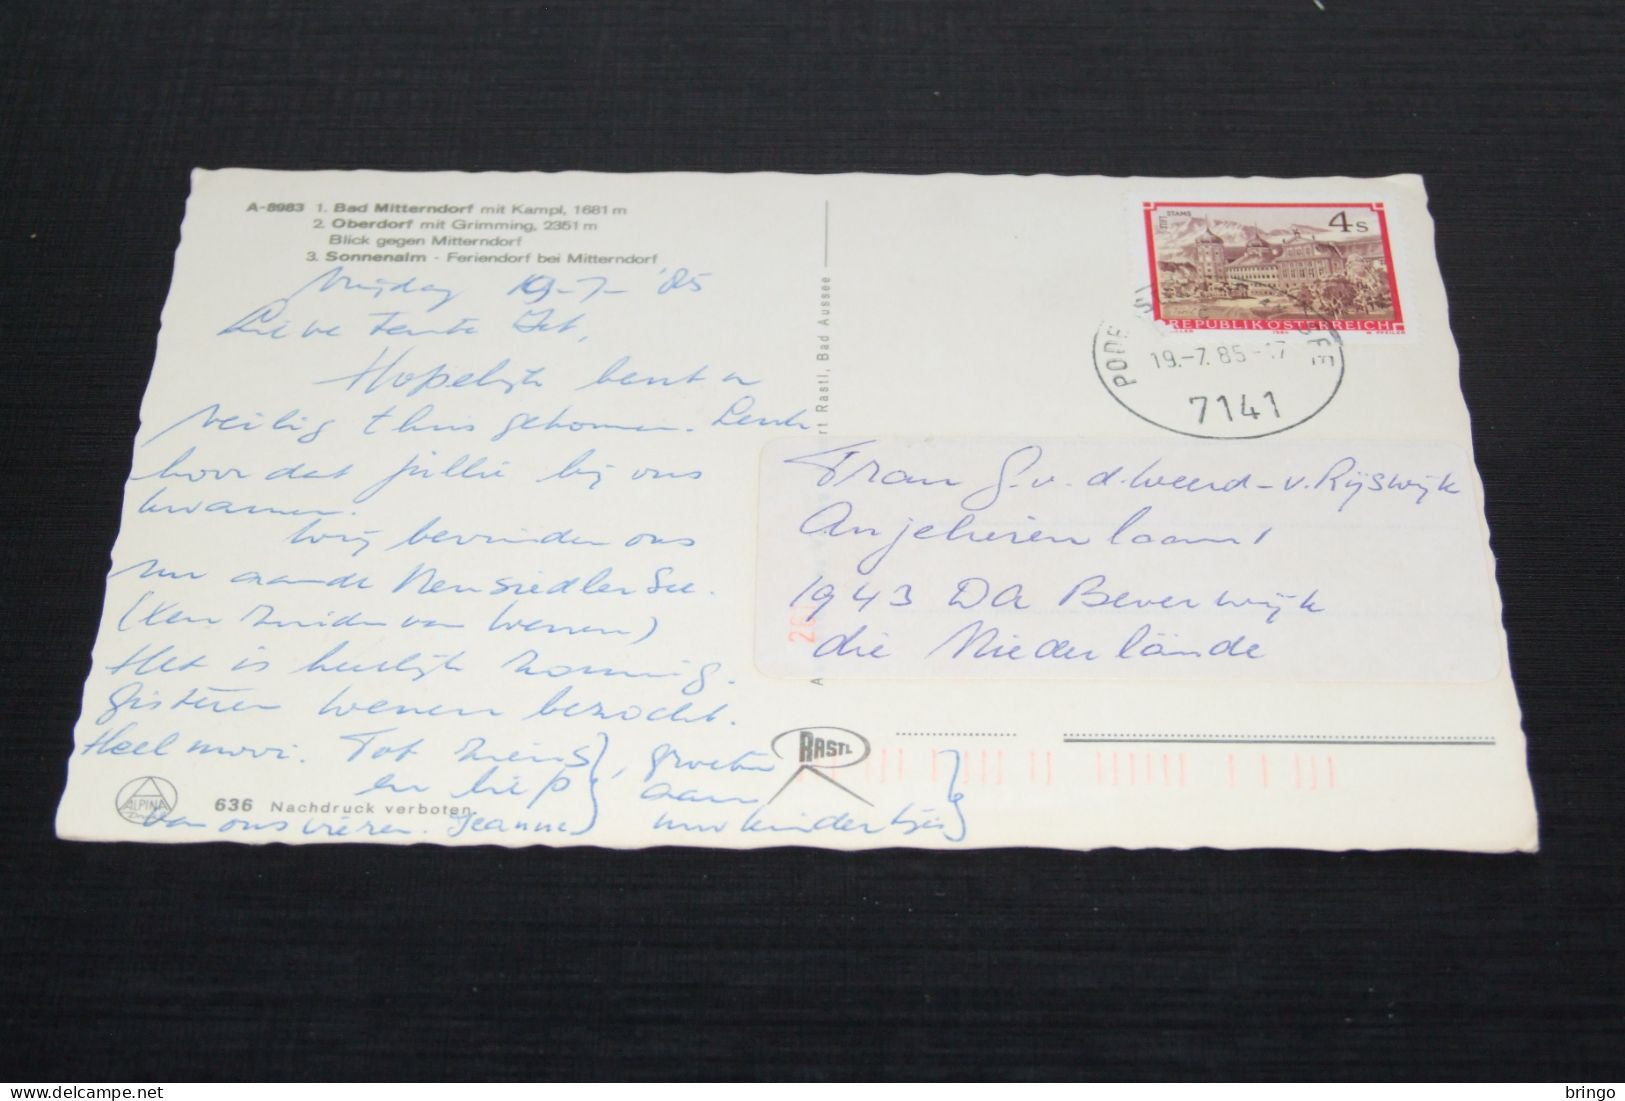 A-8983 1. Bad Mitterndorf mit Kampl, 1681 m
2. Oberdorf mit Grimming, 2351 m
Blick gegen Mitterndorf
3. Sonnenalm - Feriendorf bei Mitterndorf
Vrijdag 19-7-'85
Lieve Tante Jet,
Hopelijk bent u
veilig thuis gekomen. Leuk
hoor dat jullie bij ons
kwamen.
Wij bevinden ons
nu aan de Neusiedler See.
(ten zuiden van Wenen)
Het is heerlijk zonnig.
Gisteren Wenen bezocht.
Heel mooi. Tot ziens, groeten
en liefs aan
van ons vieren. Jeanne uw kindertjes
ALPINA
636 Nachdruck verboten
rt Rastl, Bad Aussee
RASTL
STIFT STAMS
4 S
REPUBLIK ÖSTERREICH
PODE
19.-7.85-17
7141
Frau G. v. d. Weerd - v. Rijswijk
Anjelierenlaan 1
1943 DA Beverwijk
die Niederlände
bringo